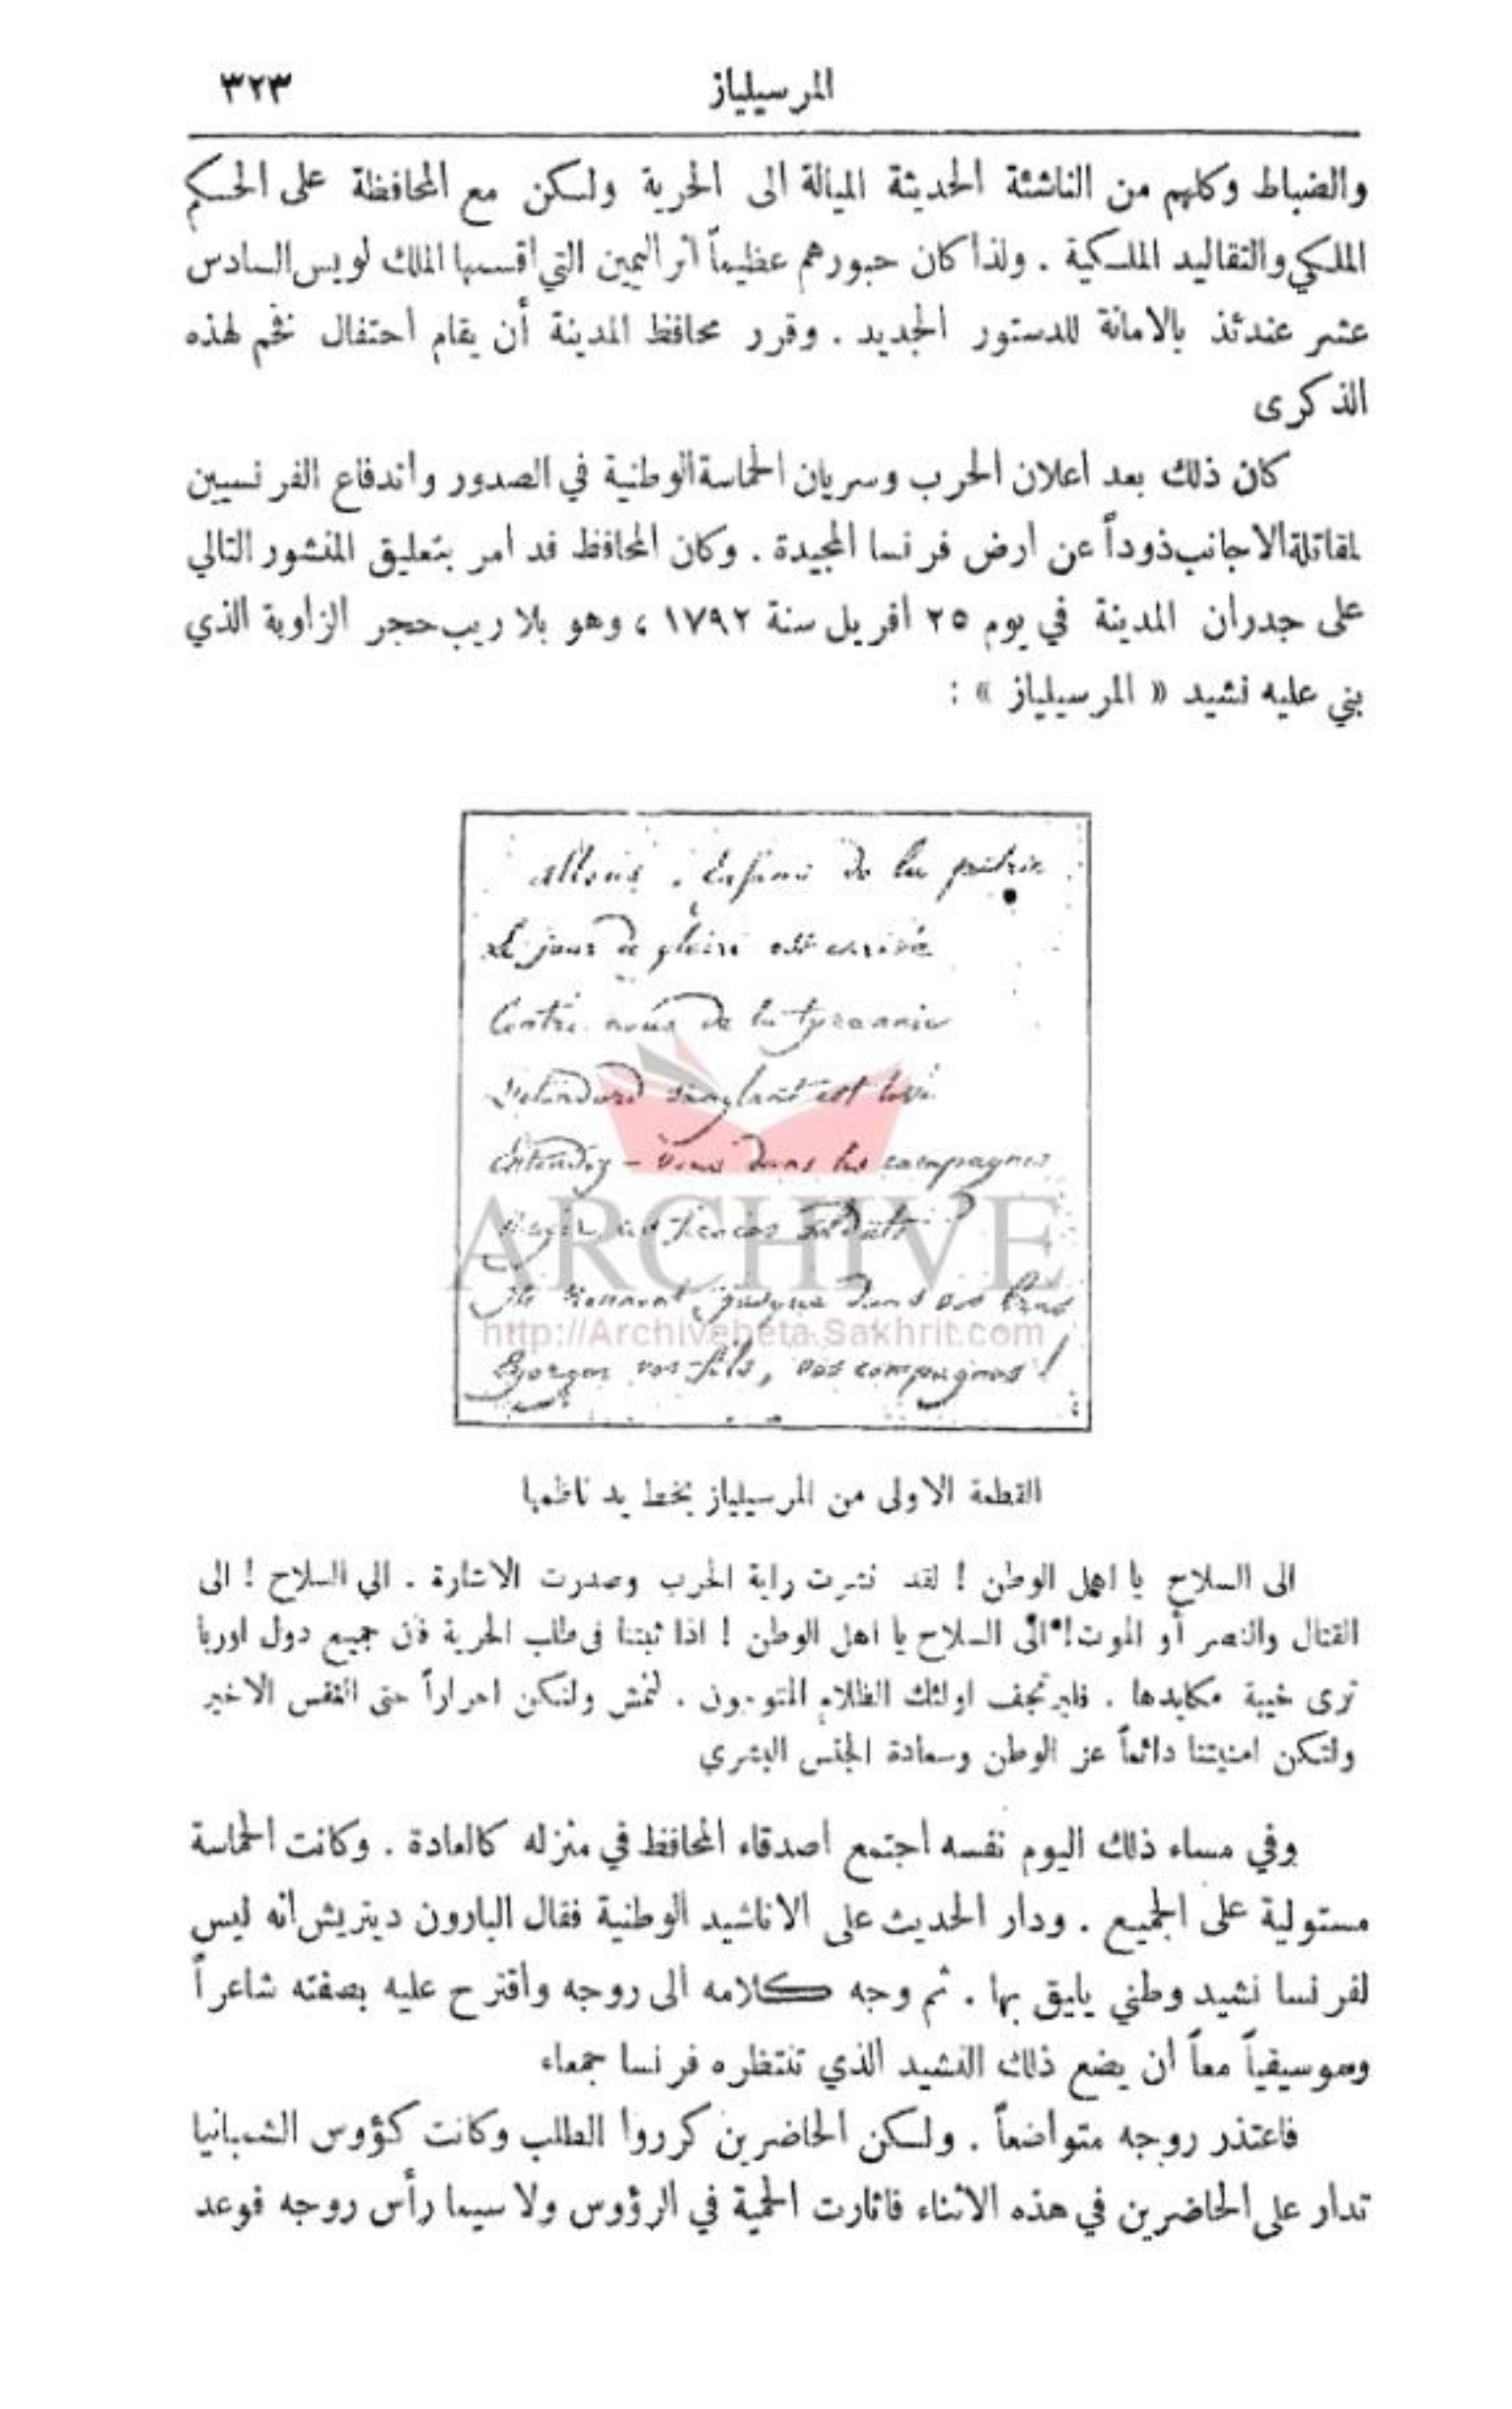 المرسيلياز ٣٢٣
والضباط وكلهم من الناشئة الحديثة الميالة الى الحرية ولكن مع المحافظة على الحكم
الملكي والتقاليد الملكية . ولذا كان حبورهم عظيماً اثر اليمين التي اقسمها الملك لويس السادس
عشر عندئذ بالامانة للدستور الجديد . وقرر محافظ المدينة أن يقام احتفال فخم لهذه
الذكرى
كان ذلك بعد اعلان الحرب وسريان الحماسة الوطنية في الصدور واندفاع الفرنسيين
لمقاتلة الاجانب ذوداً عن ارض فرنسا المجيدة . وكان المحافظ قد امر بتعليق المنشور التالي
على جدران المدينة في يوم ٢٥ افريل سنة ١٧٩٢ ، وهو بلا ريب حجر الزاوية الذي
بني عليه نشيد « المرسيلياز » :
Allons, Enfans de la patrie
Le jour de gloire est arrivé
Contre nous de la tyrannie
L'etendard sanglant est levé
Entendez-vous dans les campagnes
Mugir ces féroces soldats ?
Ils viennent jusque dans vos bras
Egorger vos fils, vos compagnes !
ARCHIVE
http://Archivebeta.Sakhrit.com
القطعة الاولى من المرسيلياز بخط يد ناظمها
الى السلاح يا اهل الوطن ! لقد نشرت راية الحرب وصدرت الاشارة . الى السلاح ! الى
القتال والنصر أو الموت ! الى السلاح يا اهل الوطن ! اذا ثبتنا في طلب الحرية فان جميع دول اوربا
ترى خيبة مكايدها . فليرتجف اولئك الظلام المتوجون . لنمش ولنكن احراراً حتى النفس الاخير
ولتكن امنيتنا دائماً عز الوطن وسعادة الجنس البشري
وفي مساء ذلك اليوم نفسه اجتمع اصدقاء المحافظ في منزله كالعادة . وكانت الحماسة
مستولية على الجميع . ودار الحديث على الاناشيد الوطنية فقال البارون ديتريش انه ليس
لفرنسا نشيد وطني يليق بها . ثم وجه كلامه الى روجه واقترح عليه بصفته شاعراً
وموسيقياً معاً ان يضع ذلك النشيد الذي تنتظره فرنسا جمعاء
فاعتذر روجه متواضعاً . ولكن الحاضرين كرروا الطلب وكانت كؤوس الشمبانيا
تدار على الحاضرين في هذه الاثناء فاثارت الحمية في الرؤوس ولا سيما رأس روجه فوعد